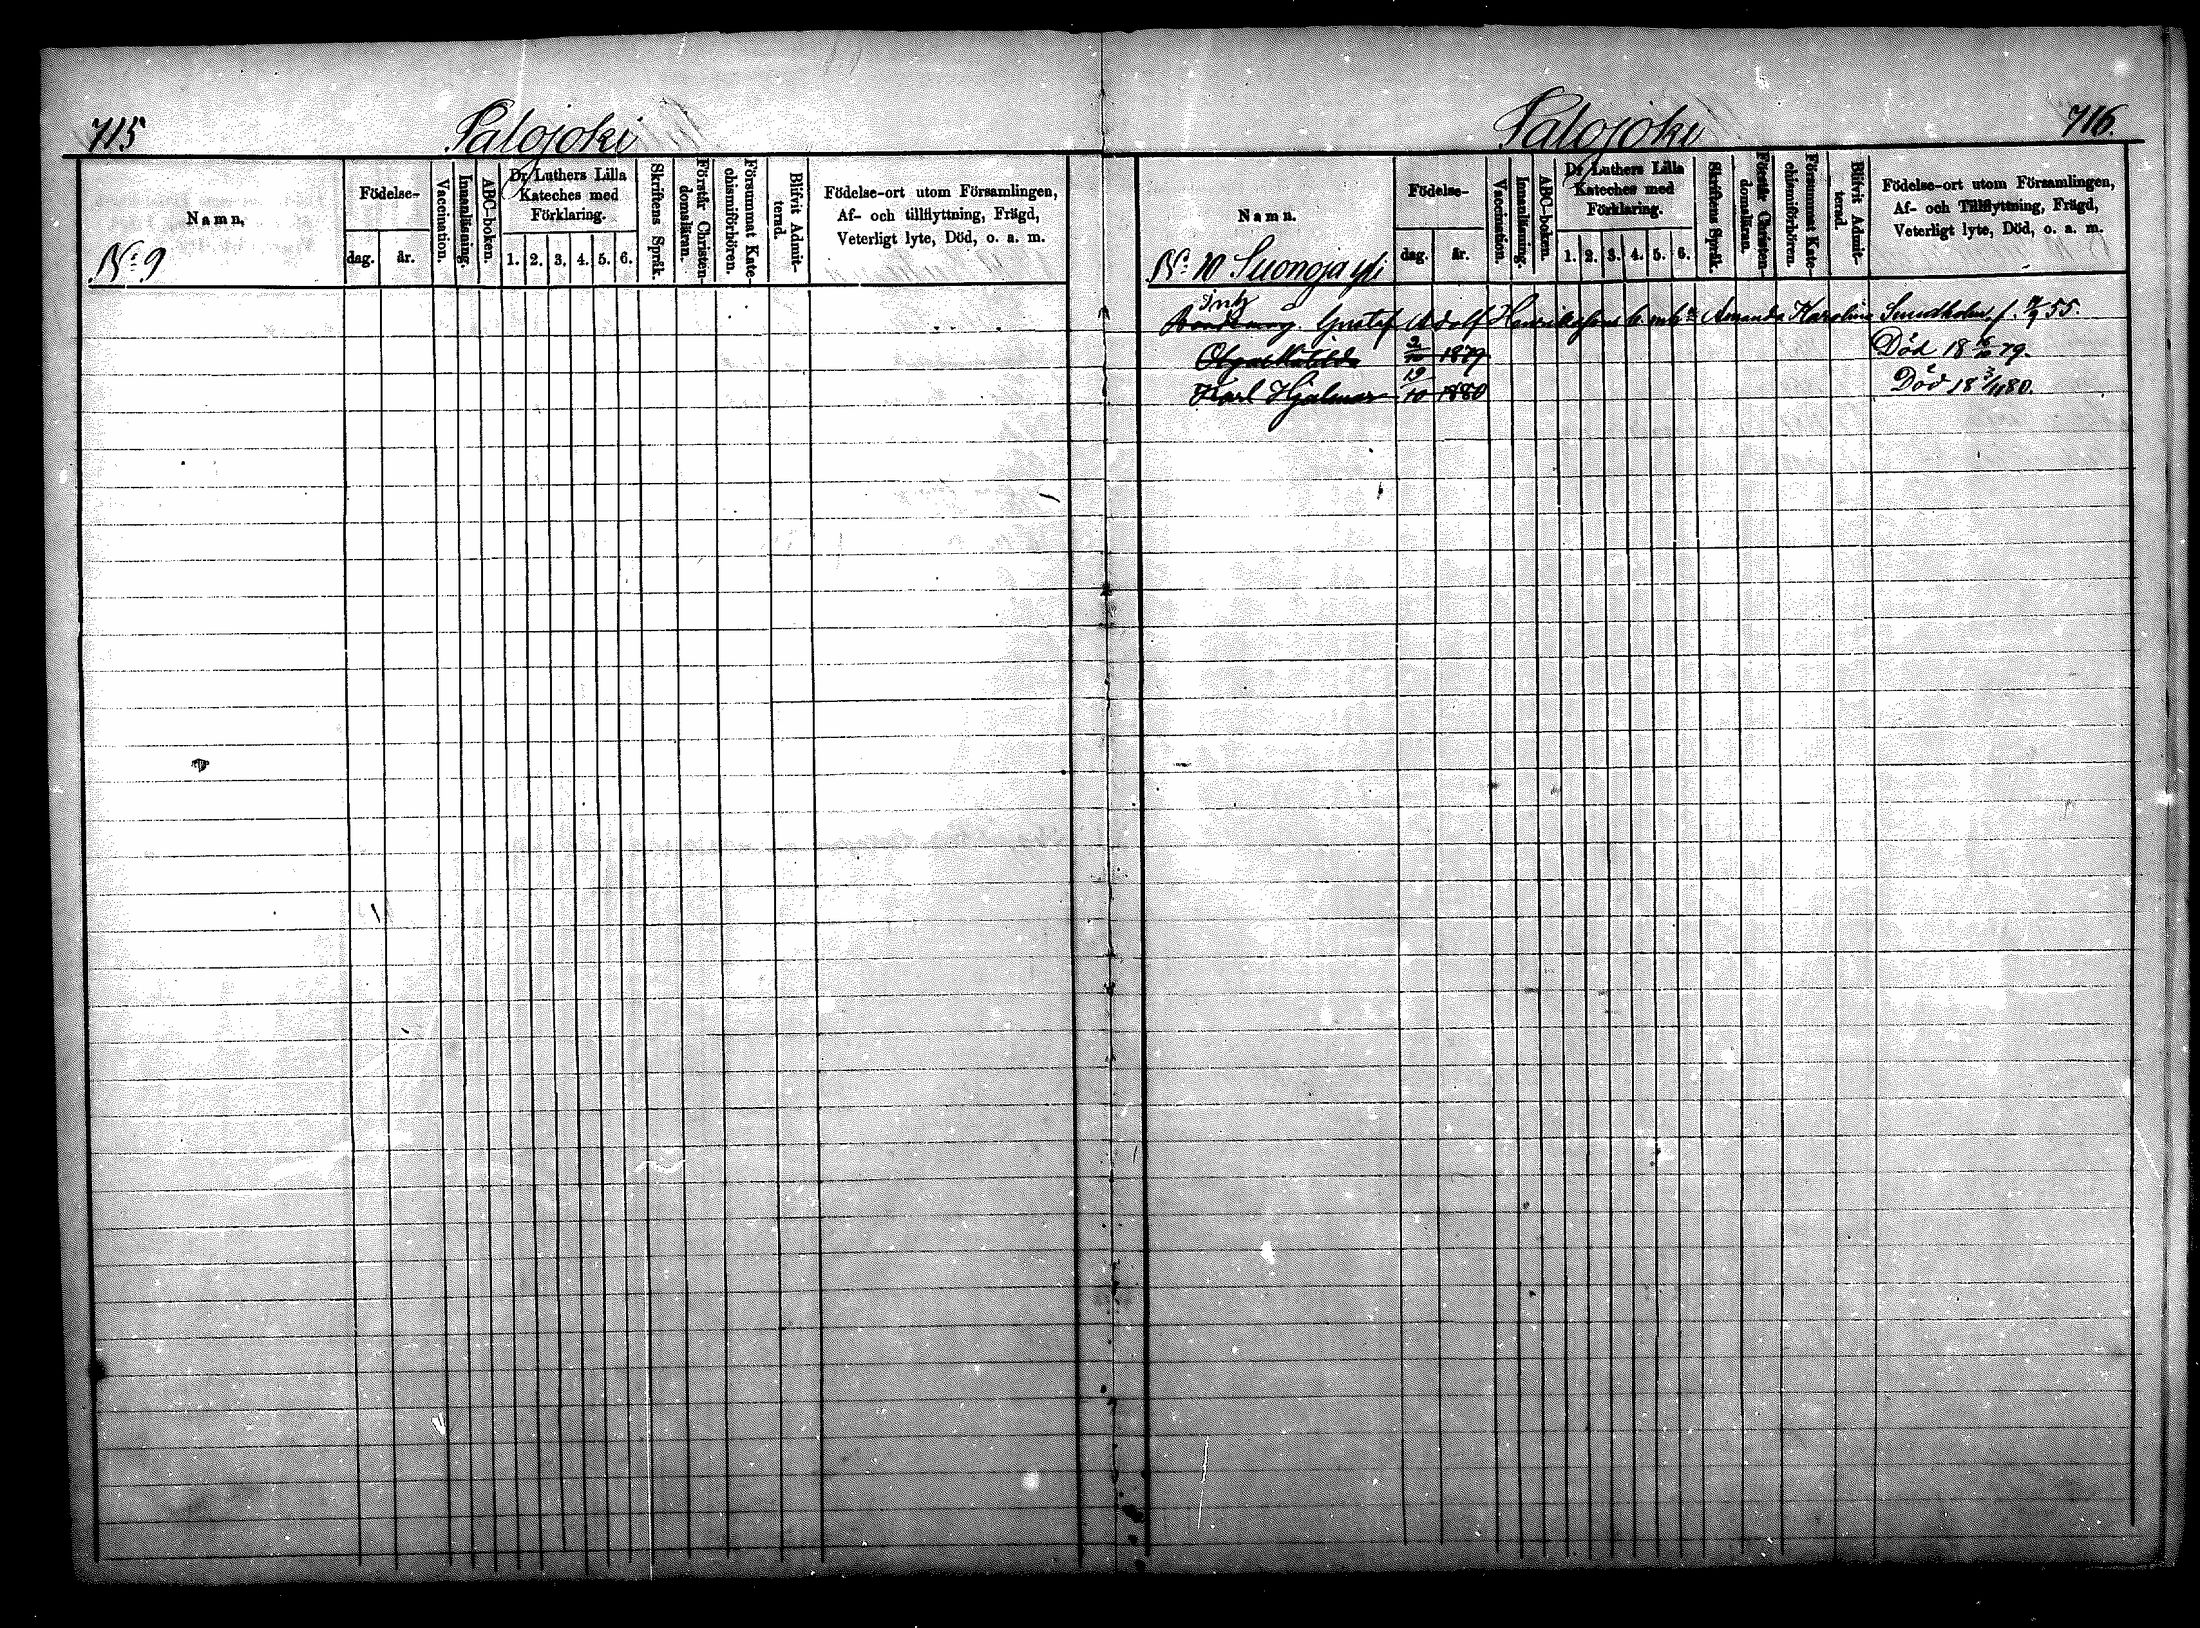 715
Palojoki
Namn.
Födelse-
dag.
år.
Vaccination.
Innanläsning.
ABC-boken.
Dr Luthers Lilla
Kateches med
Förklaring.
1. 2. 3. 4. 5. 6.
Skriftens Språk.
Förstår Christen-
domsläran.
Försummat Kate-
chismiförhören.
Blifvit Admit-
terad.
Födelse-ort utom Församlingen,
Af- och tillflyttning, Frägd,
Veterligt lyte, Död, o. a. m.
No 9
Palojoki
716.
Namn.
Födelse-
dag.
år.
Vaccination.
Innanläsning.
ABC-boken.
Dr Luthers Lilla
Kateches med
Förklaring.
1. 2. 3. 4. 5. 6.
Skriftens Språk.
Förstår Christen-
domsläran.
Försummat Kate-
chismiförhören.
Blifvit Admit-
terad.
Födelse-ort utom Församlingen,
Af- och Tillflyttning, Frägd,
Veterligt lyte, Död, o. a. m.
No 10
Gustaf Adolf Henriksson Amanda Karolina f. 55.
1879 Död 18 79.
Karl Hjalmar 19/10 1880 Död 18 3/11 80.